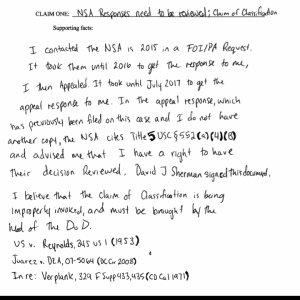 CLAIM ONE: NSA Responses need to be reviewed; Claim of Classification
Supporting facts:
I contacted the NSA is 2015 in a FOI/PA Request.
It took them until 2016 to get the response to me,
I then Appealed. It took until July 2017 to get the
appeal response to me. In the appeal response, which
has previously been filed on this case and I do not have
another copy, the NSA cites Title 5 USC § 552(a)(4)(B)
and advised me that I have a right to have
their decision Reviewed. David J Sherman signed this document.
I believe that the Claim of Classification is being
improperly invoked, and must be brought by the
head of the DoD.
US v. Reynolds, 345 US 1 (1953)
Juarez v. DEA, 07-5064 (DC Cir 2008)
In re: Verplank, 329 F Supp 433, 435 (CD Cal 1971)